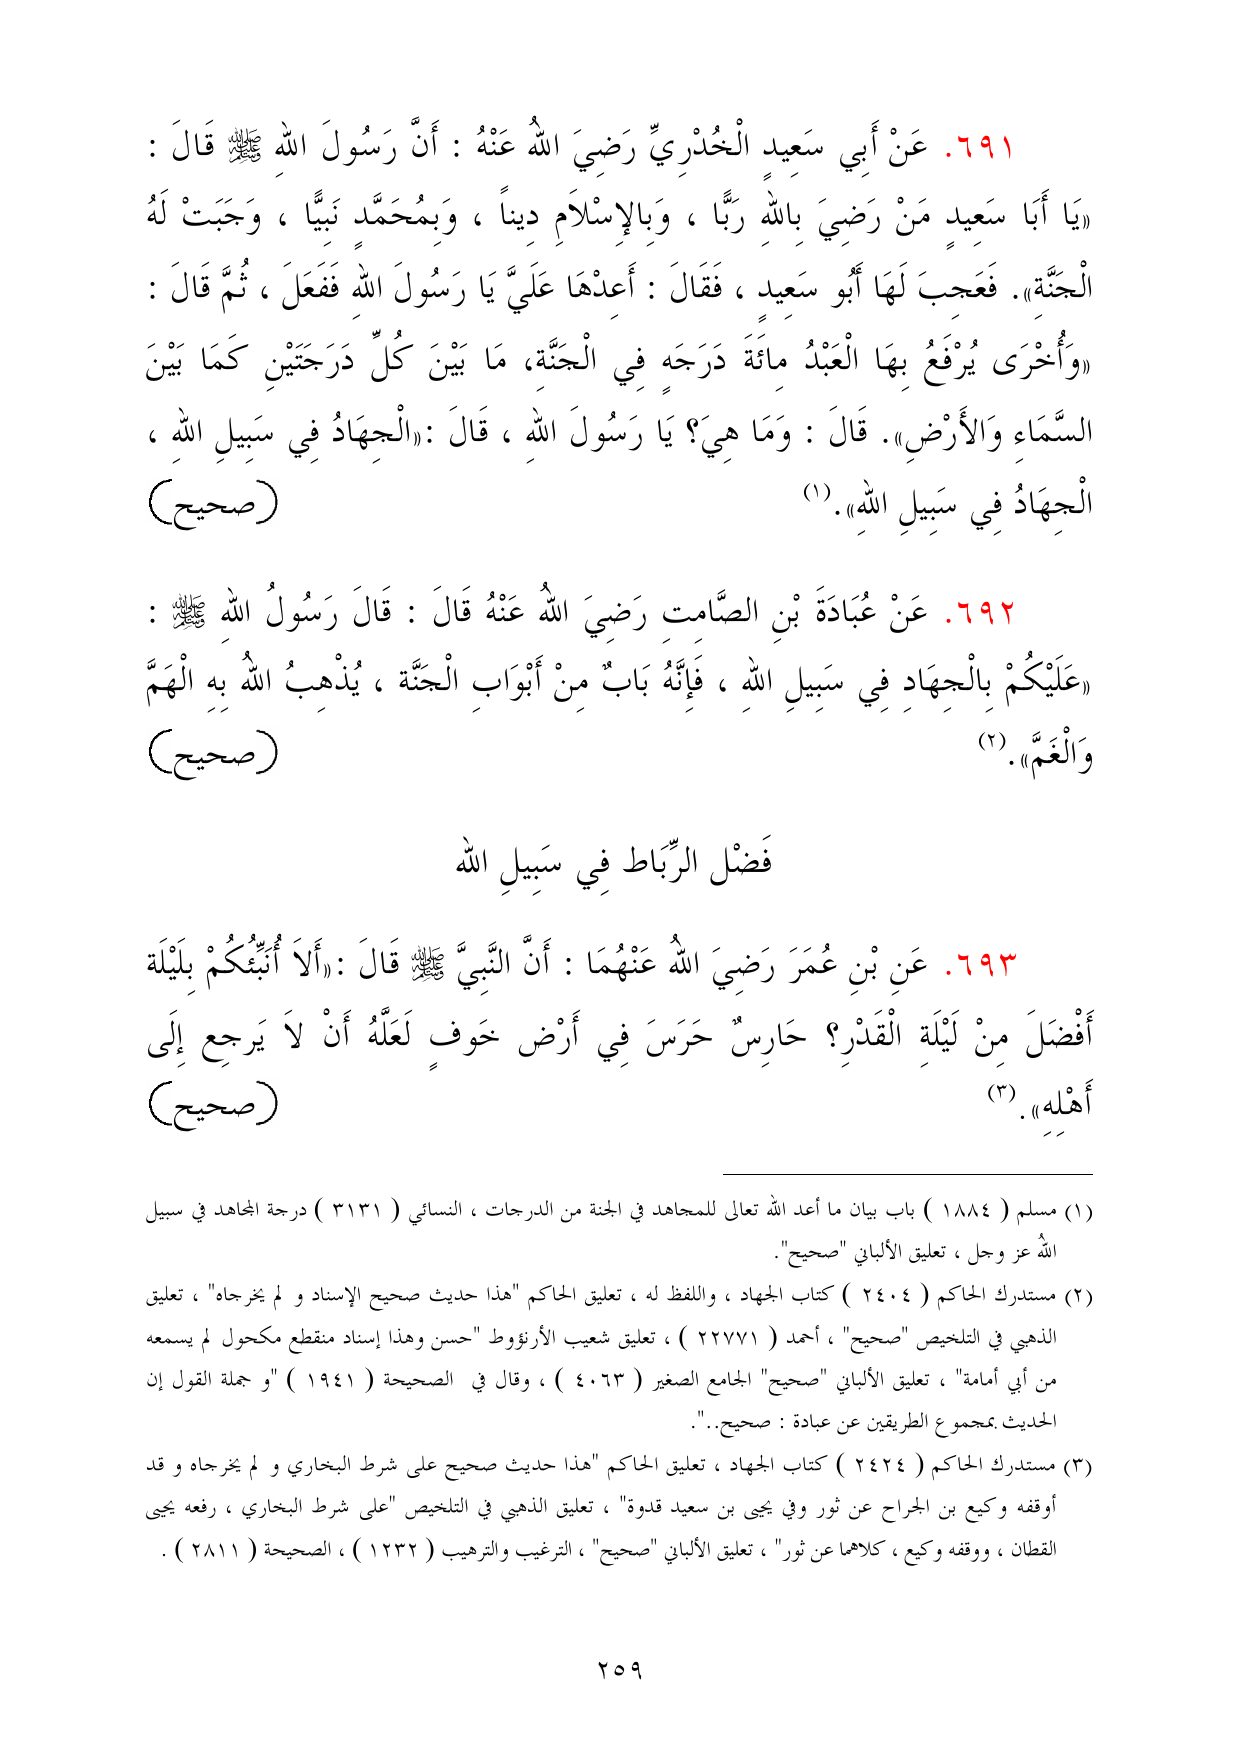 ٦٩١. عَنْ أَبِي سَعِيدٍ الْخُدْرِيِّ رَضِيَ اللهُ عَنْهُ : أَنَّ رَسُولَ اللهِ ﷺ قَالَ :
«يَا أَبَا سَعِيدٍ مَنْ رَضِيَ بِاللهِ رَبًّا ، وَبِالإِسْلاَمِ دِيناً ، وَبِمُحَمَّدٍ نَبِيًّا ، وَجَبَتْ لَهُ
الْجَنَّةِ». فَعَجِبَ لَهَا أَبُو سَعِيدٍ ، فَقَالَ : أَعِدْهَا عَلَيَّ يَا رَسُولَ اللهِ فَفَعَلَ ، ثُمَّ قَالَ :
«وَأُخْرَى يُرْفَعُ بِهَا الْعَبْدُ مِائَةَ دَرَجَهٍ فِي الْجَنَّةِ، مَا بَيْنَ كُلِّ دَرَجَتَيْنِ كَمَا بَيْنَ
السَّمَاءِ وَالأَرْضِ». قَالَ : وَمَا هِيَ؟ يَا رَسُولَ اللهِ ، قَالَ :«الْجِهَادُ فِي سَبِيلِ اللهِ ،
الْجِهَادُ فِي سَبِيلِ اللهِ».(١) (صحيح)
٦٩٢. عَنْ عُبَادَةَ بْنِ الصَّامِتِ رَضِيَ اللهُ عَنْهُ قَالَ : قَالَ رَسُولُ اللهِ ﷺ :
«عَلَيْكُمْ بِالْجِهَادِ فِي سَبِيلِ اللهِ ، فَإِنَّهُ بَابٌ مِنْ أَبْوَابِ الْجَنَّة ، يُذْهِبُ اللهُ بِهِ الْهَمَّ
وَالْغَمَّ».(٢) (صحيح)
فَضْل الرِّبَاط فِي سَبِيلِ الله
٦٩٣. عَنِ بْنِ عُمَرَ رَضِيَ اللهُ عَنْهُمَا : أَنَّ النَّبِيَّ ﷺ قَالَ :«أَلاَ أُنَبِّئُكُمْ بِلَيْلَة
أَفْضَلَ مِنْ لَيْلَةِ الْقَدْرِ؟ حَارِسٌ حَرَسَ فِي أَرْض خَوفٍ لَعَلَّهُ أَنْ لاَ يَرجِع إِلَى
أَهْلِهِ».(٣) (صحيح)
(١) مسلم ( ١٨٨٤ ) باب بيان ما أعد الله تعالى للمجاهد في الجنة من الدرجات ، النسائي ( ٣١٣١ ) درجة المجاهد في سبيل
الله عز وجل ، تعليق الألباني "صحيح".
(٢) مستدرك الحاكم ( ٢٤٠٤ ) كتاب الجهاد ، واللفظ له ، تعليق الحاكم "هذا حديث صحيح الإسناد و لم يخرجاه" ، تعليق
الذهبي في التلخيص "صحيح" ، أحمد ( ٢٢٧٧١ ) ، تعليق شعيب الأرنؤوط "حسن وهذا إسناد منقطع مكحول لم يسمعه
من أبي أمامة" ، تعليق الألباني "صحيح" الجامع الصغير ( ٤٠٦٣ ) ، وقال في الصحيحة ( ١٩٤١ ) "و جملة القول إن
الحديث بمجموع الطريقين عن عبادة : صحيح..".
(٣) مستدرك الحاكم ( ٢٤٢٤ ) كتاب الجهاد ، تعليق الحاكم "هذا حديث صحيح على شرط البخاري و لم يخرجاه و قد
أوقفه وكيع بن الجراح عن ثور وفي يحيى بن سعيد قدوة" ، تعليق الذهبي في التلخيص "على شرط البخاري ، رفعه يحيى
القطان ، ووقفه وكيع ، كلاهما عن ثور" ، تعليق الألباني "صحيح" ، الترغيب والترهيب ( ١٢٣٢ ) ، الصحيحة ( ٢٨١١ ) .
٢٥٩